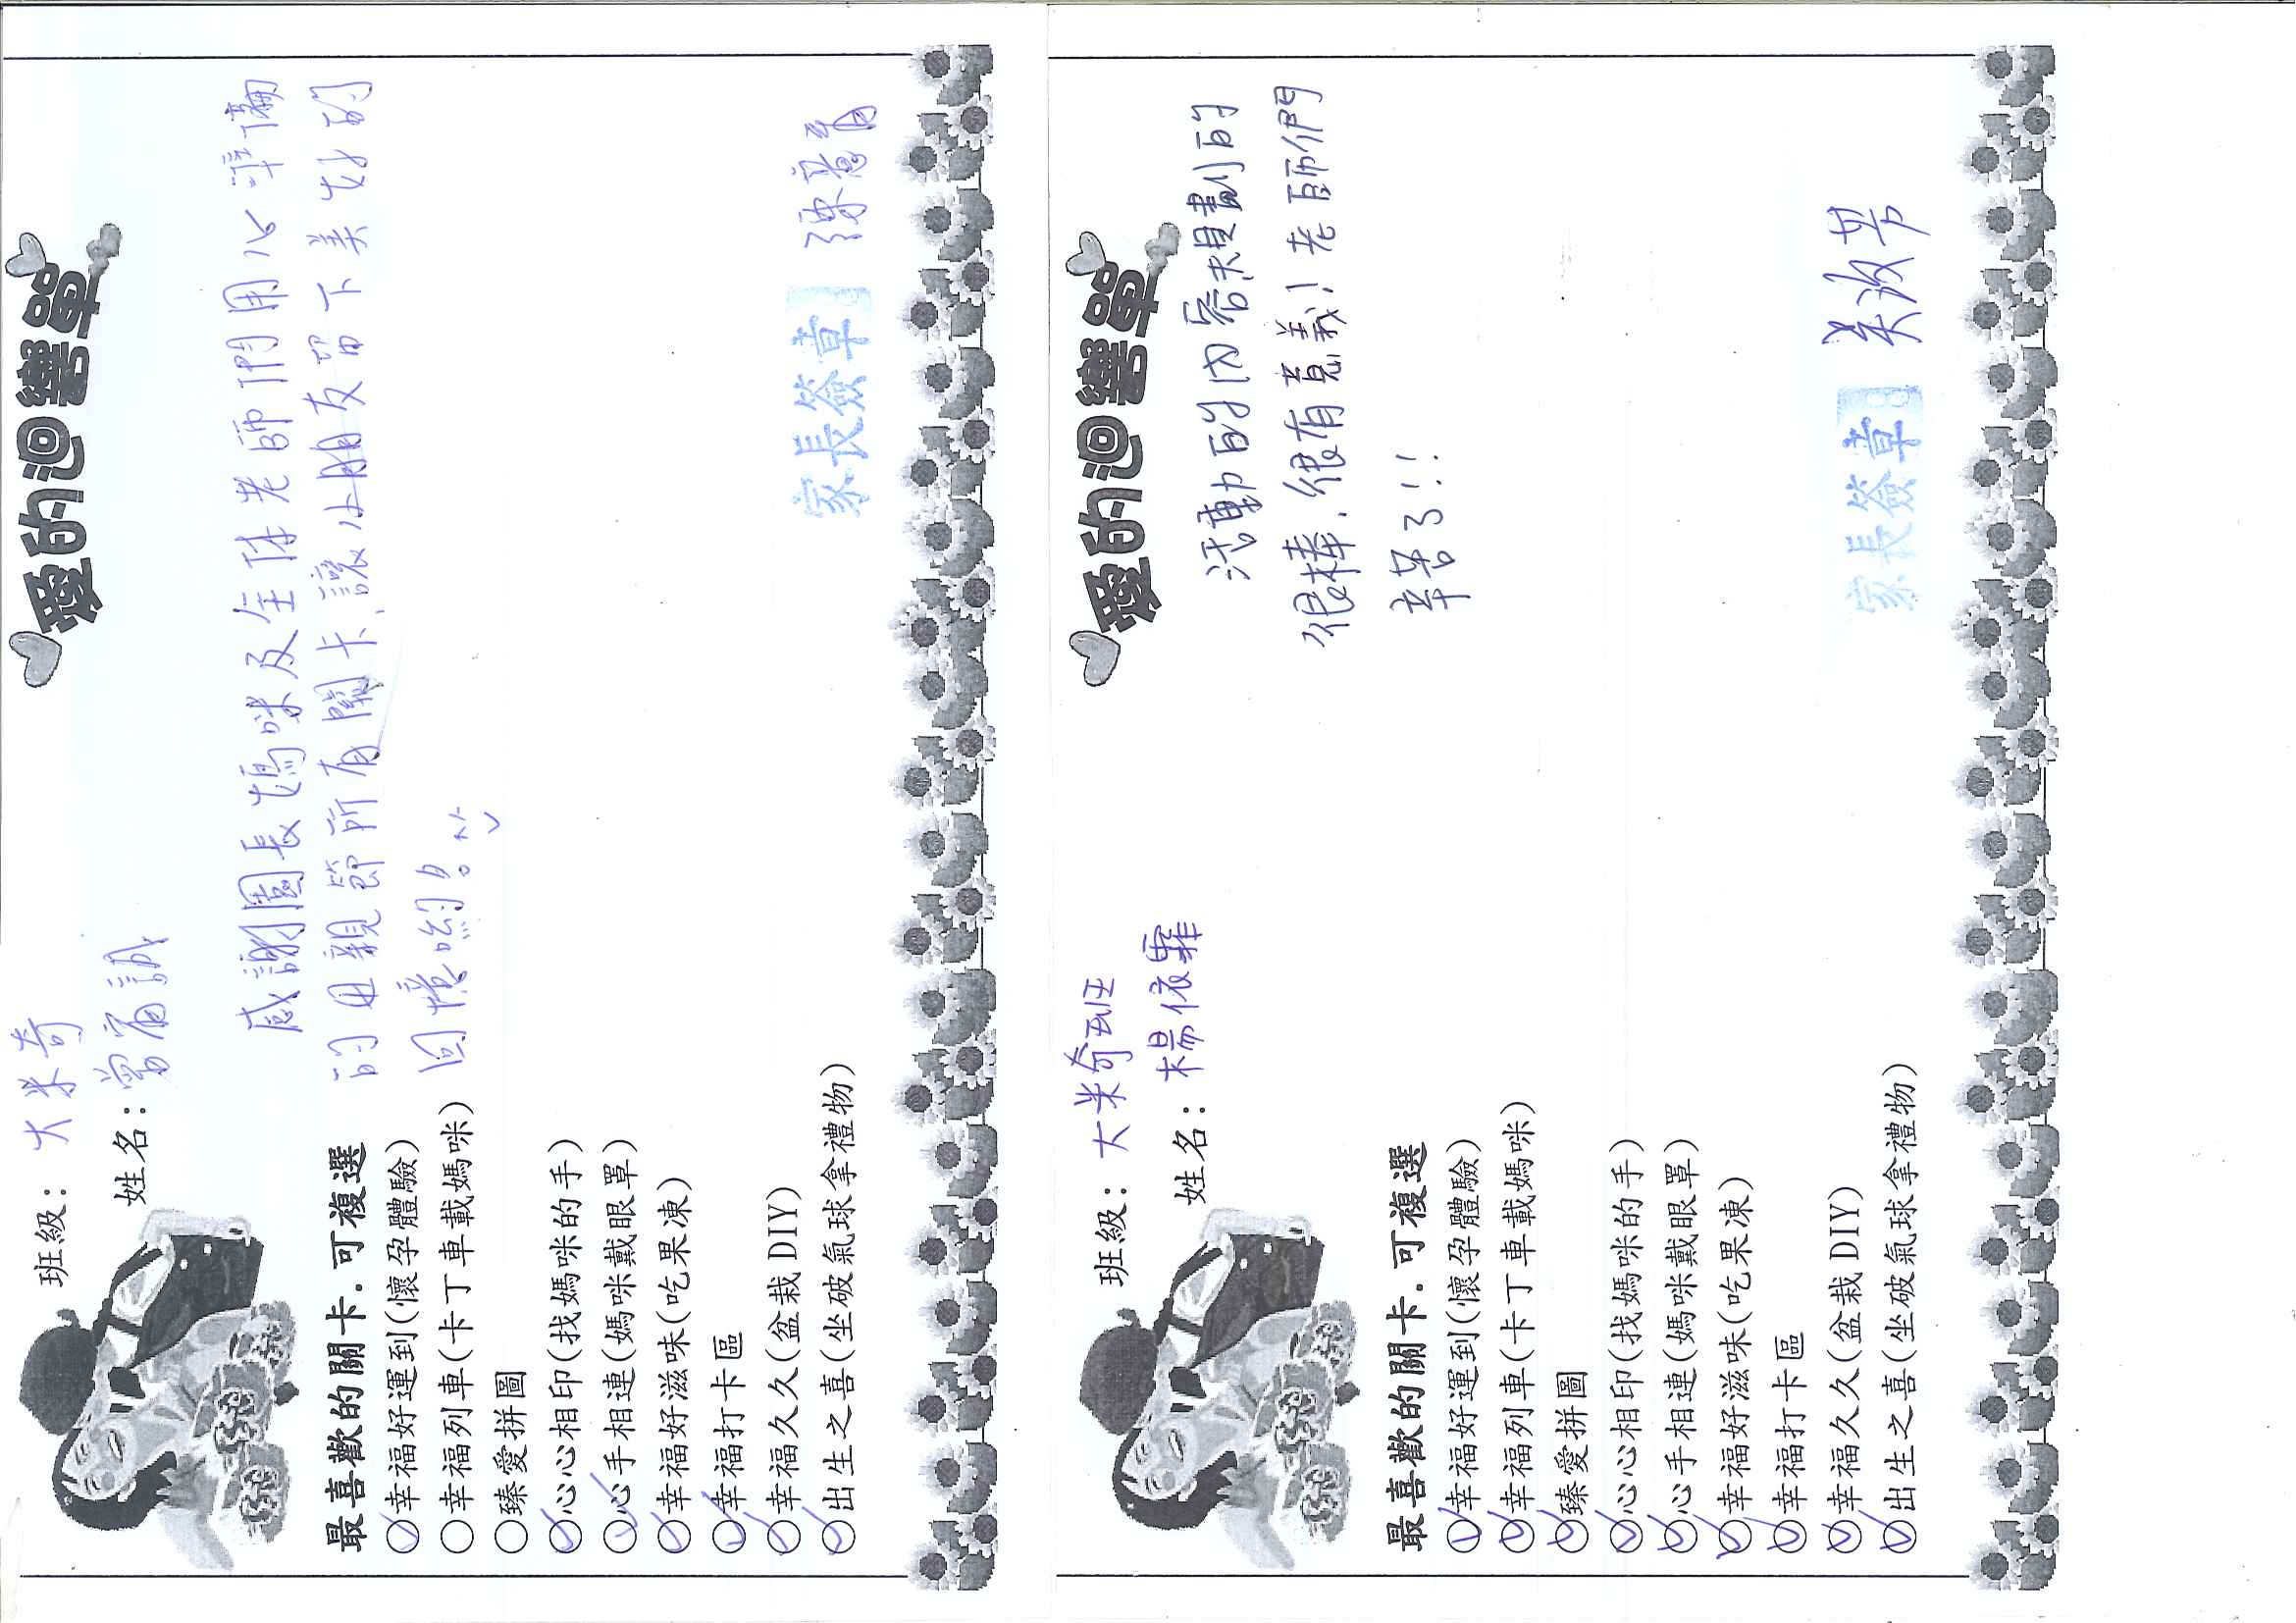 愛的迴響單
班級：大米奇
姓名：
感謝園長媽咪及全体老師們用心準備
的母親節所有關卡，讓小朋友留下美好的
回憶喲！
最喜歡的關卡．可複選
幸福好運到(懷孕體驗)
幸福列車(卡丁車載媽咪)
臻愛拼圖
心心相印(找媽咪的手)
心手相連(媽咪戴眼罩)
幸福好滋味(吃果凍)
幸福打卡區
幸福久久(盆栽DIY)
出生之喜(坐破氣球拿禮物)
家長簽章
愛的迴響單
班級：大米奇班
姓名：楊依霏
活動的內容規劃的
很棒、很有意義！老師們
辛苦了!!
最喜歡的關卡．可複選
幸福好運到(懷孕體驗)
幸福列車(卡丁車載媽咪)
臻愛拼圖
心心相印(找媽咪的手)
心手相連(媽咪戴眼罩)
幸福好滋味(吃果凍)
幸福打卡區
幸福久久(盆栽DIY)
出生之喜(坐破氣球拿禮物)
家長簽章